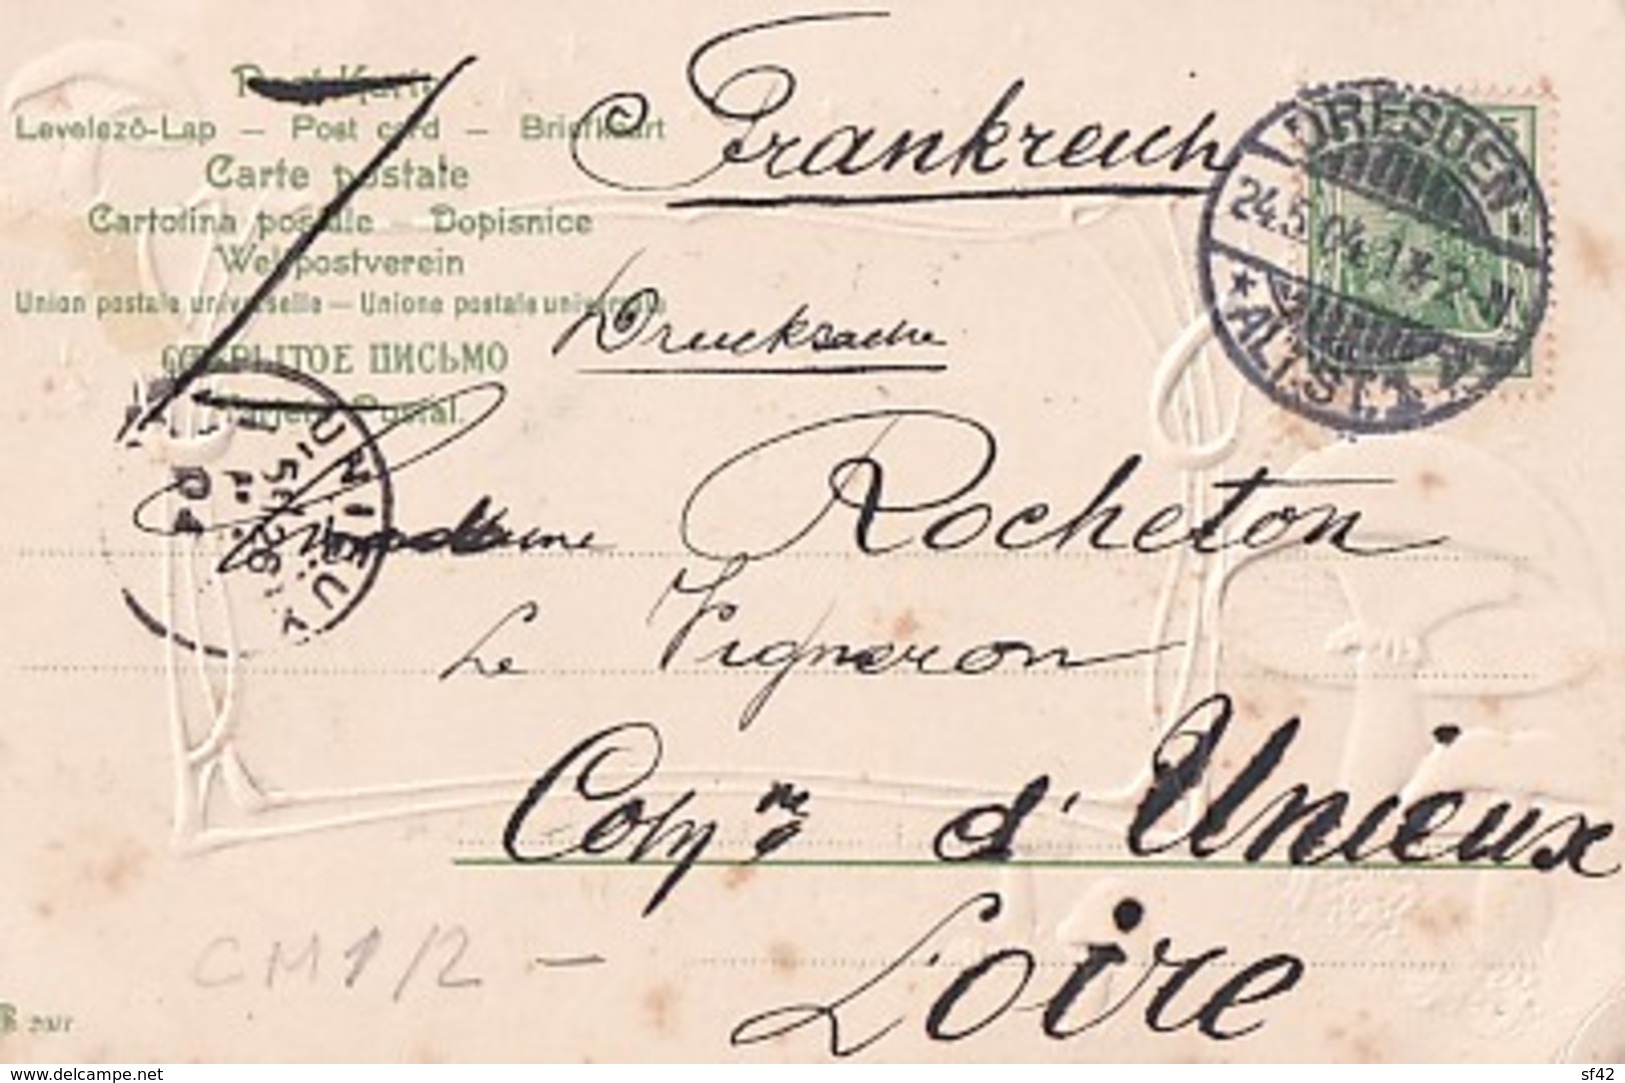 Post-Karte
Levelezö-Lap — Post card — Briefkaart
Carte postale
Cartolina postale — Dopisnice
Weltpostverein
Union postale universelle — Unione postale universale
ОТКРЫТОЕ ПИСЬМО
Postal.
Frankreich
Drucksache
DRESDEN
24.5.04.1
* ALTST. 1
UNIEUX
Rocheton
Le Vigneron
d'Unieux
Loire
CM 1/2 —
www.delcampe.net
sf42